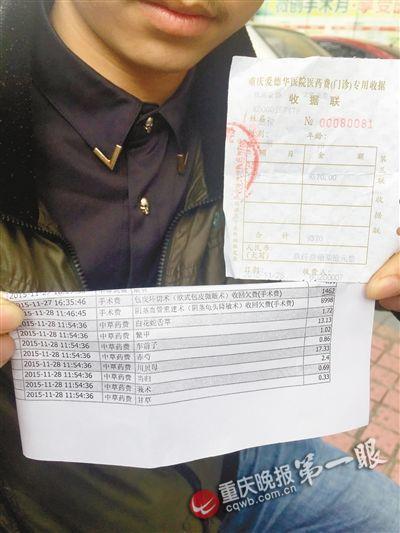 重庆爱德华医院医药费(门诊)专用收据
收据联
№ 00080081
性别:
年龄:
项目
金额
¥370.00
第三联
收据联
合计
¥370
人民币
(大写)
收费人:
1462
2015-11-27 16:35:46 手术费 包皮环切术(欧式包皮微雕术)收回欠费(手术费) 8998
2015-11-28 11:46:45 手术费 阴茎血管重建术(阴茎龟头降敏术)收回欠费(手术费) 1.72
2015-11-28 11:54:36 中草药费 白花蛇舌草 13.13
2015-11-28 11:54:36 中草药费 鳖甲 1.02
2015-11-28 11:54:36 中草药费 车前子 0.86
2015-11-28 11:54:36 中草药费 赤芍 17.33
2015-11-28 11:54:36 中草药费 川贝母 2.4
2015-11-28 11:54:36 中草药费 当归 0.69
2015-11-28 11:54:36 中草药费 莪术 0.33
2015-11-28 11:54:36 中草药费 甘草
重庆晚报 第一眼
cqwb.com.cn